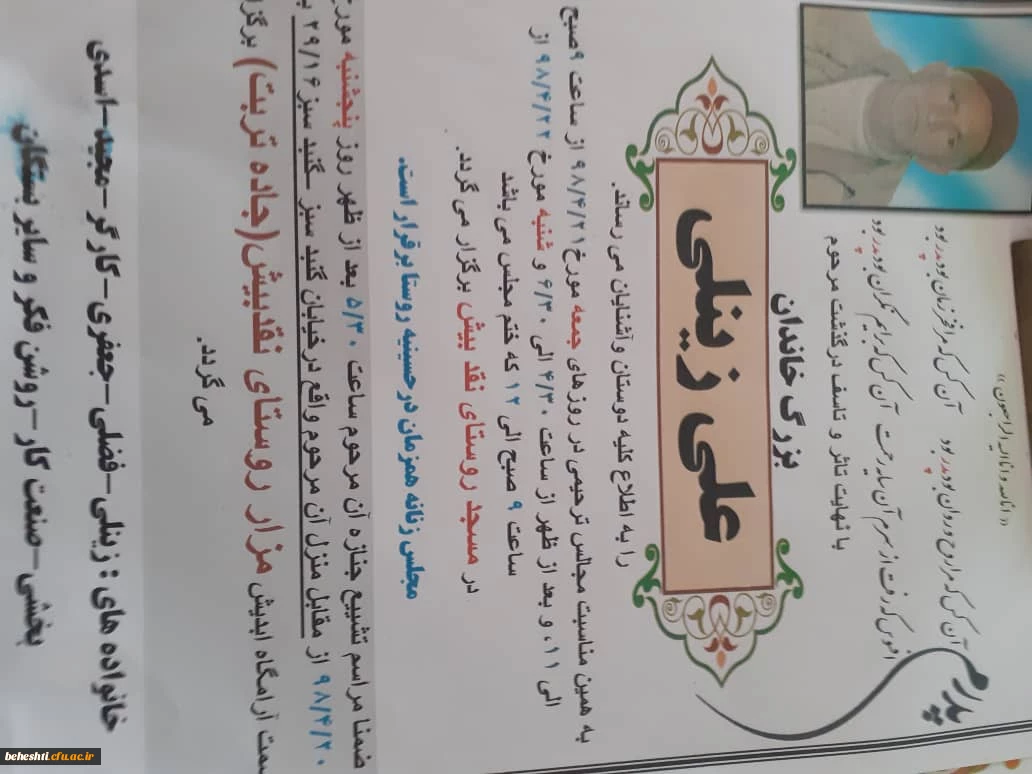 « انا لله و انا الیه راجعون »
پدرم
آن کس که مرا روح و روان بود پدر بود آن کس که مرا فخر زمان بود پدر بود
افسوس که رفت از سرم آن سایه رحمت آن کس که برایم نگران بود پدر بود
با نهایت تاثر و تاسف درگذشت مرحوم
بزرگ خاندان
علی زینلی
را به اطلاع کلیه دوستان و آشنایان می رساند.
به همین مناسبت مجالس ترحیمی در روزهای جمعه مورخ ۹۸/۴/۲۱ از ساعت ۹صبح
الی ۱۱، و بعد از ظهر از ساعت ۴/۳۰ الی ۶/۳۰ و شنبه مورخ ۹۸/۴/۲۲ از
ساعت ۹ صبح الی ۱۲ که ختم مجلس می باشد
در مسجد روستای نقد بیش برگزار می گردد.
مجلس زنانه همزمان در حسینیه روستا برقرار است.
ضمنا مراسم تشییع جنازه آن مرحوم ساعت ۵/۳۰ بعد از ظهر روز پنجشنبه مورخ
۹۸/۴/۲۰ از مقابل منزل آن مرحوم واقع در خیابان گنبد سبز -گنبد سبز ۲۹/۱۶
سمت آرامگاه ابدیش مزار روستای نقدبیش(جاده تربت)
می گردد.
خانواده های : زینلی-فضلی-جعفری-کارگر-مجید-اسدی
بخشی-صنعت کار-روشن فکر و سایر بستگان
beheshti.cfu.ac.ir